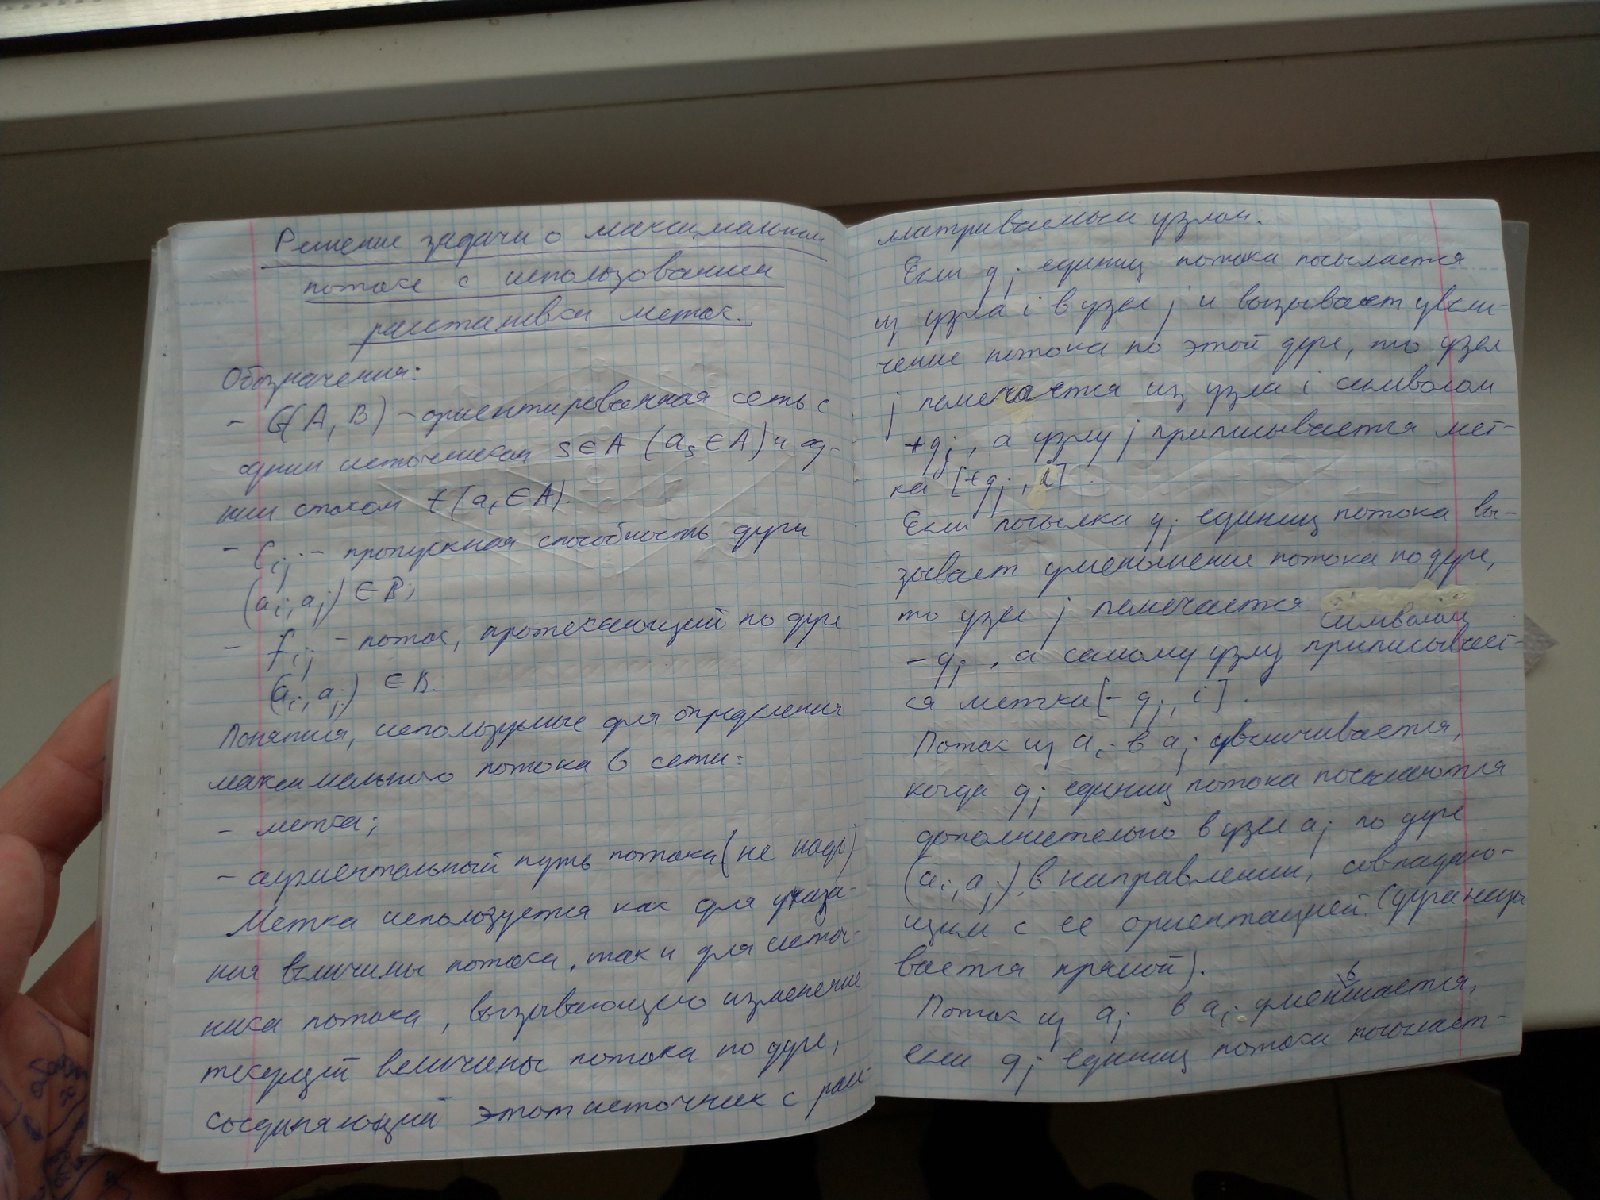 Решение задачи о максимальном
потоке с использованием
расстановки меток.
Обозначения:
- G(A, B) - ориентированная сеть с
одним источником s∈A (aₛ∈A) и од-
ним стоком t (aₜ∈A).
- Cᵢⱼ - пропускная способность дуги
(aᵢ, aⱼ) ∈ B;
- fᵢⱼ - поток, протекающий по дуге
(aᵢ, aⱼ) ∈ B.
Понятия, используемые для определения
максимального потока в сети:
- метка;
- аугментальный путь потока (не надо)
Метка используется как для указа-
ния величины потока, так и для источ-
ника потока, вызывающего изменение
текущей величины потока по дуге,
соединяющий этот источник с расс-
матриваемым узлом.
Если qⱼ единиц потока посылается
из узла i в узел j и вызывает увели-
чение потока по этой дуге, то узел
j помечается из узла i символом
+qⱼ, а узлу j приписывается мет-
ка [+qⱼ, i].
Если посылка qⱼ единиц потока вы-
зывает уменьшение потока по дуге,
то узел j помечается символом
-qⱼ, а самому узлу приписывает-
ся метка [- qⱼ, i].
Поток из aᵢ в aⱼ увеличивается,
когда qⱼ единиц потока посылаются
дополнительно в узел aⱼ по дуге
(aᵢ, aⱼ) в направлении, совпадаю-
щим с ее ориентацией. (дуга назы
вается прямой).
Поток из aᵢ в aⱼ уменьшается,
если qⱼ единиц потока посылает-